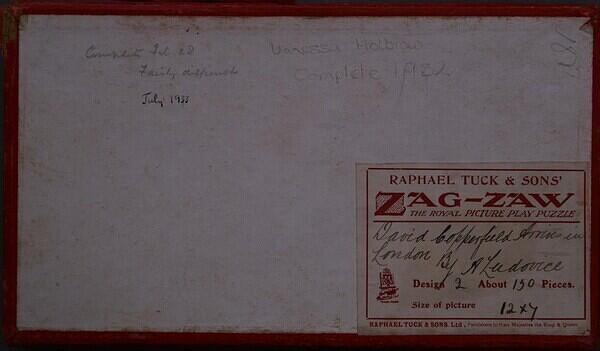 Complete Feb. 28
Fairly difficult
July 1933
Vanessa Holbrow
Complete 1982
RAPHAEL TUCK & SONS'
ZAG-ZAW
THE ROYAL PICTURE PLAY PUZZLE
David Copperfield Arrives in
London By A Ludovici
Design 2 About 150 Pieces.
Size of picture 12x7
RAPHAEL TUCK & SONS, Ltd., Publishers to Their Majesties the King & Queen